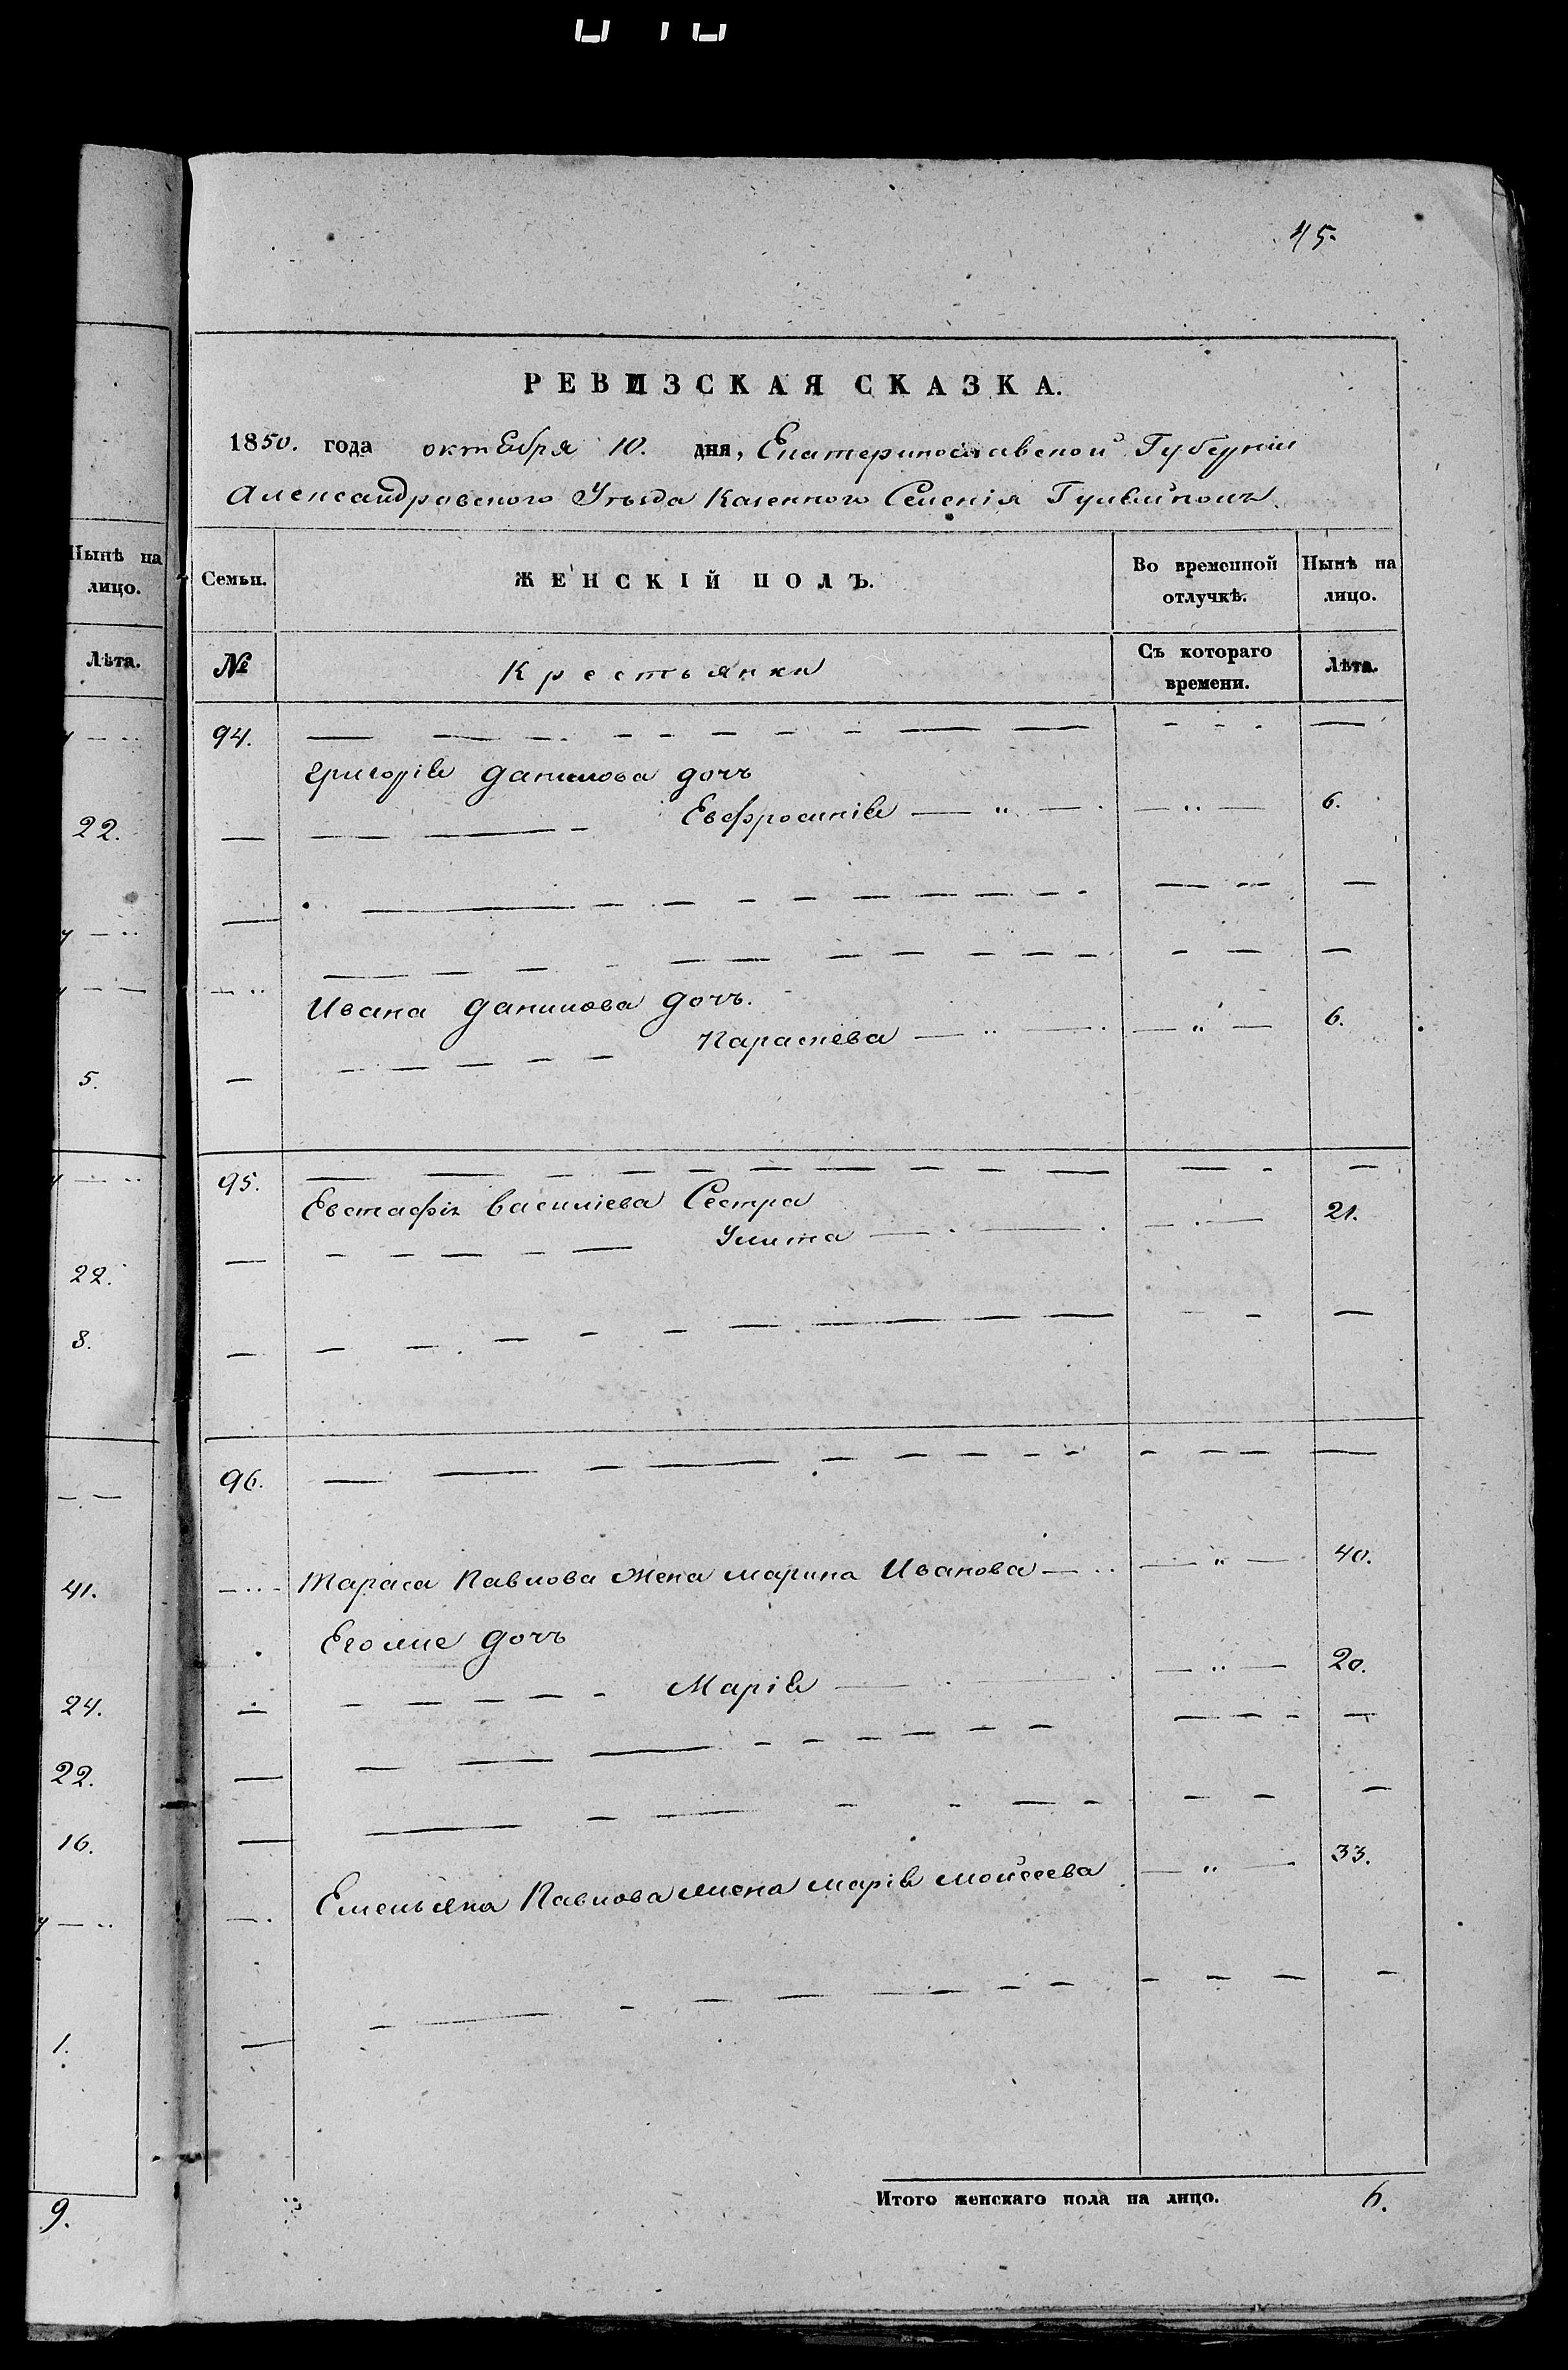 45.
РЕВИЗСКАЯ СКАЗКА.
1850. года октября 10. дня, Екатеринославской Губерніи
Александровского Уѣзда Казенного Селенія Гуляйполя
Нынѣ на лицо.
Семьи.
ЖЕНСКІЙ ПОЛЪ.
Во временной отлучкѣ.
Нынѣ на лицо.
Лѣта.
№
Крестьянки
Съ котораго времени.
Лѣта.
94.
Григорія Данилова дочь
22.
Евфросинія — " — — " — 6.
Ивана Данилова дочь.
Параскева — " — — " — 6.
5.
95.
Евстафія Василіева Сестра
Улита — . — — . — 21.
22.
8.
96.
41.
Тараса Павлова жена Марина Иванова — " — 40.
Егоже дочь
24.
Марія — . — — " — 20.
22.
16.
Емельяна Павлова жена Марія Моисеева — " — 33.
1.
9.
Итого женскаго пола на лицо. 6.